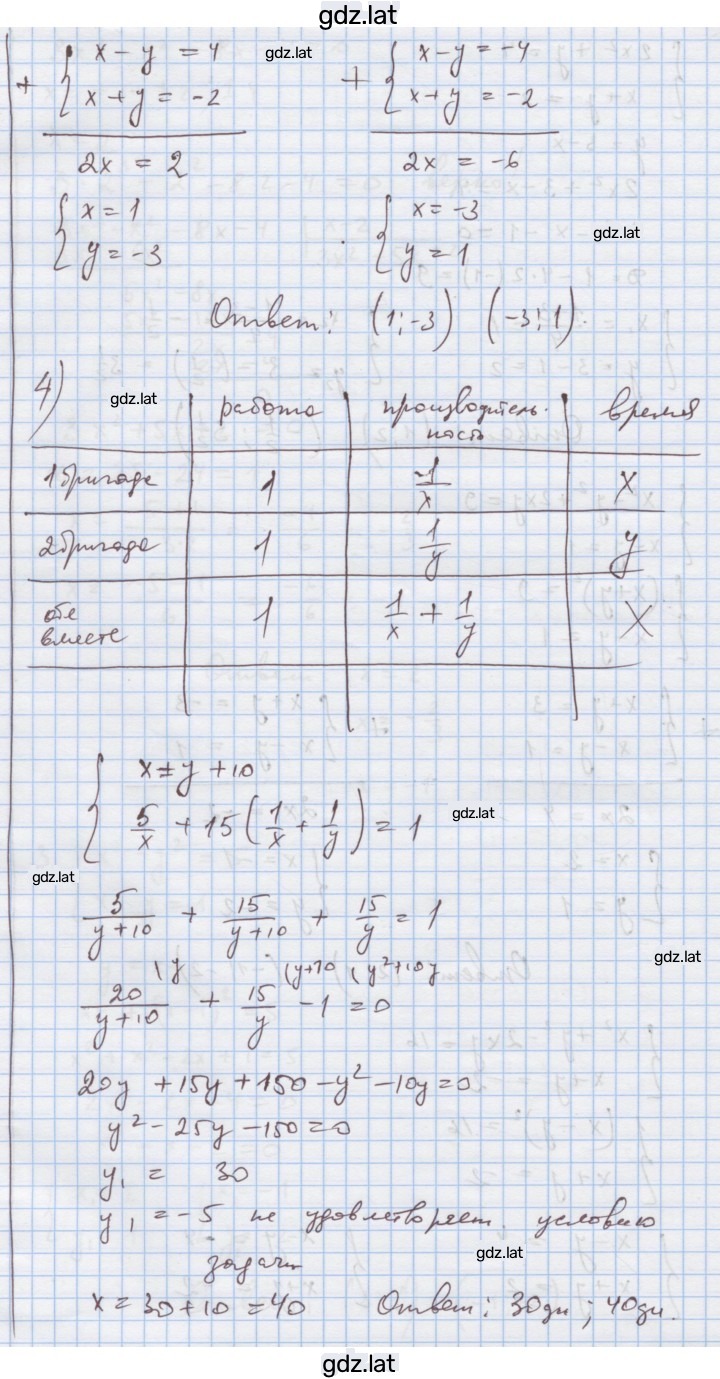 gdz.lat
x - y = 4
gdz.lat
x - y = -4
+ { x + y = -2
+ { x + y = -2
2x = 2
2x = -6
{ x = 1
{ x = -3
gdz.lat
y = -3
y = 1
Ответ: (1; -3) (-3; 1).
4)
gdz.lat
работа
производительность
время
1 бригада 1 1/x x
2 бригада 1 1/y y
обе вместе 1 1/x + 1/y X
{ x = y + 10
5/x + 15(1/x + 1/y) = 1
gdz.lat
gdz.lat
5/(y+10) + 15/(y+10) + 15/y = 1
gdz.lat
(y (y+10 (y²+10y
20/(y+10) + 15/y - 1 = 0
20y + 15y + 150 - y² - 10y = 0
y² - 25y - 150 = 0
y₁ = 30
y₁ = -5 не удовлетворяет условию
задачи
gdz.lat
x = 30 + 10 = 40 Ответ: 30дн; 40дн.
gdz.lat